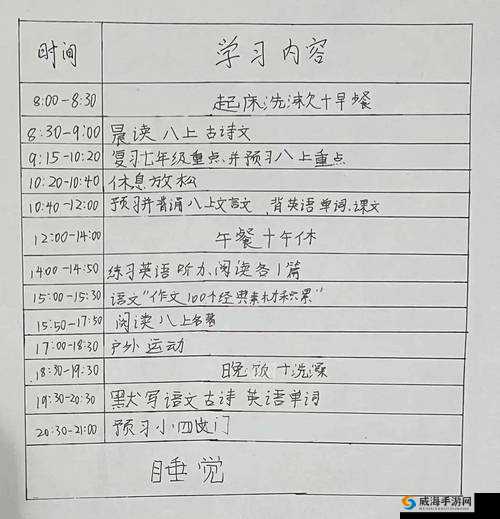 时间 学习内容
8:00-8:30 起床洗漱+早餐
8:30-9:00 晨读 八上古诗文
9:15-10:20 复习七年级重点并预习八上重点
10:20-10:40 休息放松
10:40-12:00 预习并背诵八上文言文 背英语单词.课文
12:00-14:00 午餐+午休
14:00-14:50 练习英语听力.阅读各1篇
15:00-15:30 语文"作文100个经典素材积累"
15:50-17:50 阅读八上名著
17:00-18:30 户外运动
18:30-19:30 晚饭+洗澡
19:30-20:30 默写语文古诗 英语单词
20:30-21:00 预习小四门
睡觉
威海手游网